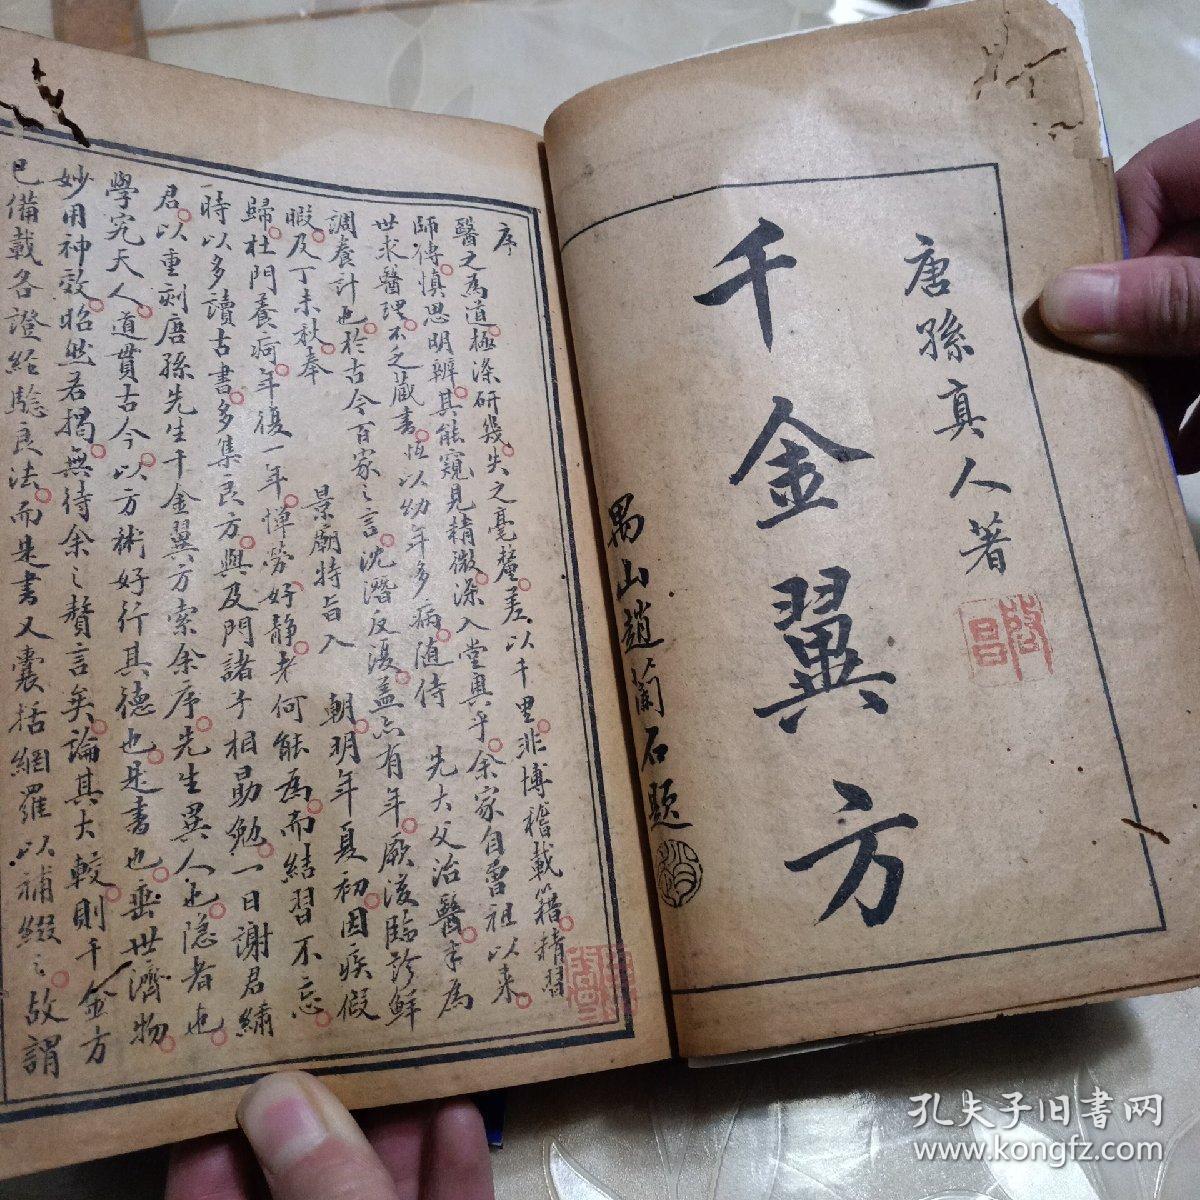 唐孫真人著
千金翼方
禺山趙蘭石題
序
醫之為道極深研幾失之毫釐差以千里非博稽載籍精習
師傳慎思明辨其能窺見精微深入堂奧乎余家自曾祖以來
世求醫理不乏藏書恆以幼年多病隨侍 先大父治醫書為
調養計也於古今百家之言沈潛反復蓋亦有年厥後臨診鮮
暇及丁未秋奉 景廟特旨入 朝明年夏初因疾假
歸杜門養疴年復一年憚勞好靜老何能為而結習不忘
時以多讀古書多集良方與及門諸子相勗勉一日謝君繡
君以重刻唐孫先生千金翼方索余序先生異人也隱者也
學究天人道貫古今以方術好行其德也是書也垂世濟物
妙用神效昭然若揭無待余之贅言矣論其大較則千金方
已備載各證經驗良法而是書又囊括網羅以補綴之故謂
孔夫子旧书网
www.kongfz.com